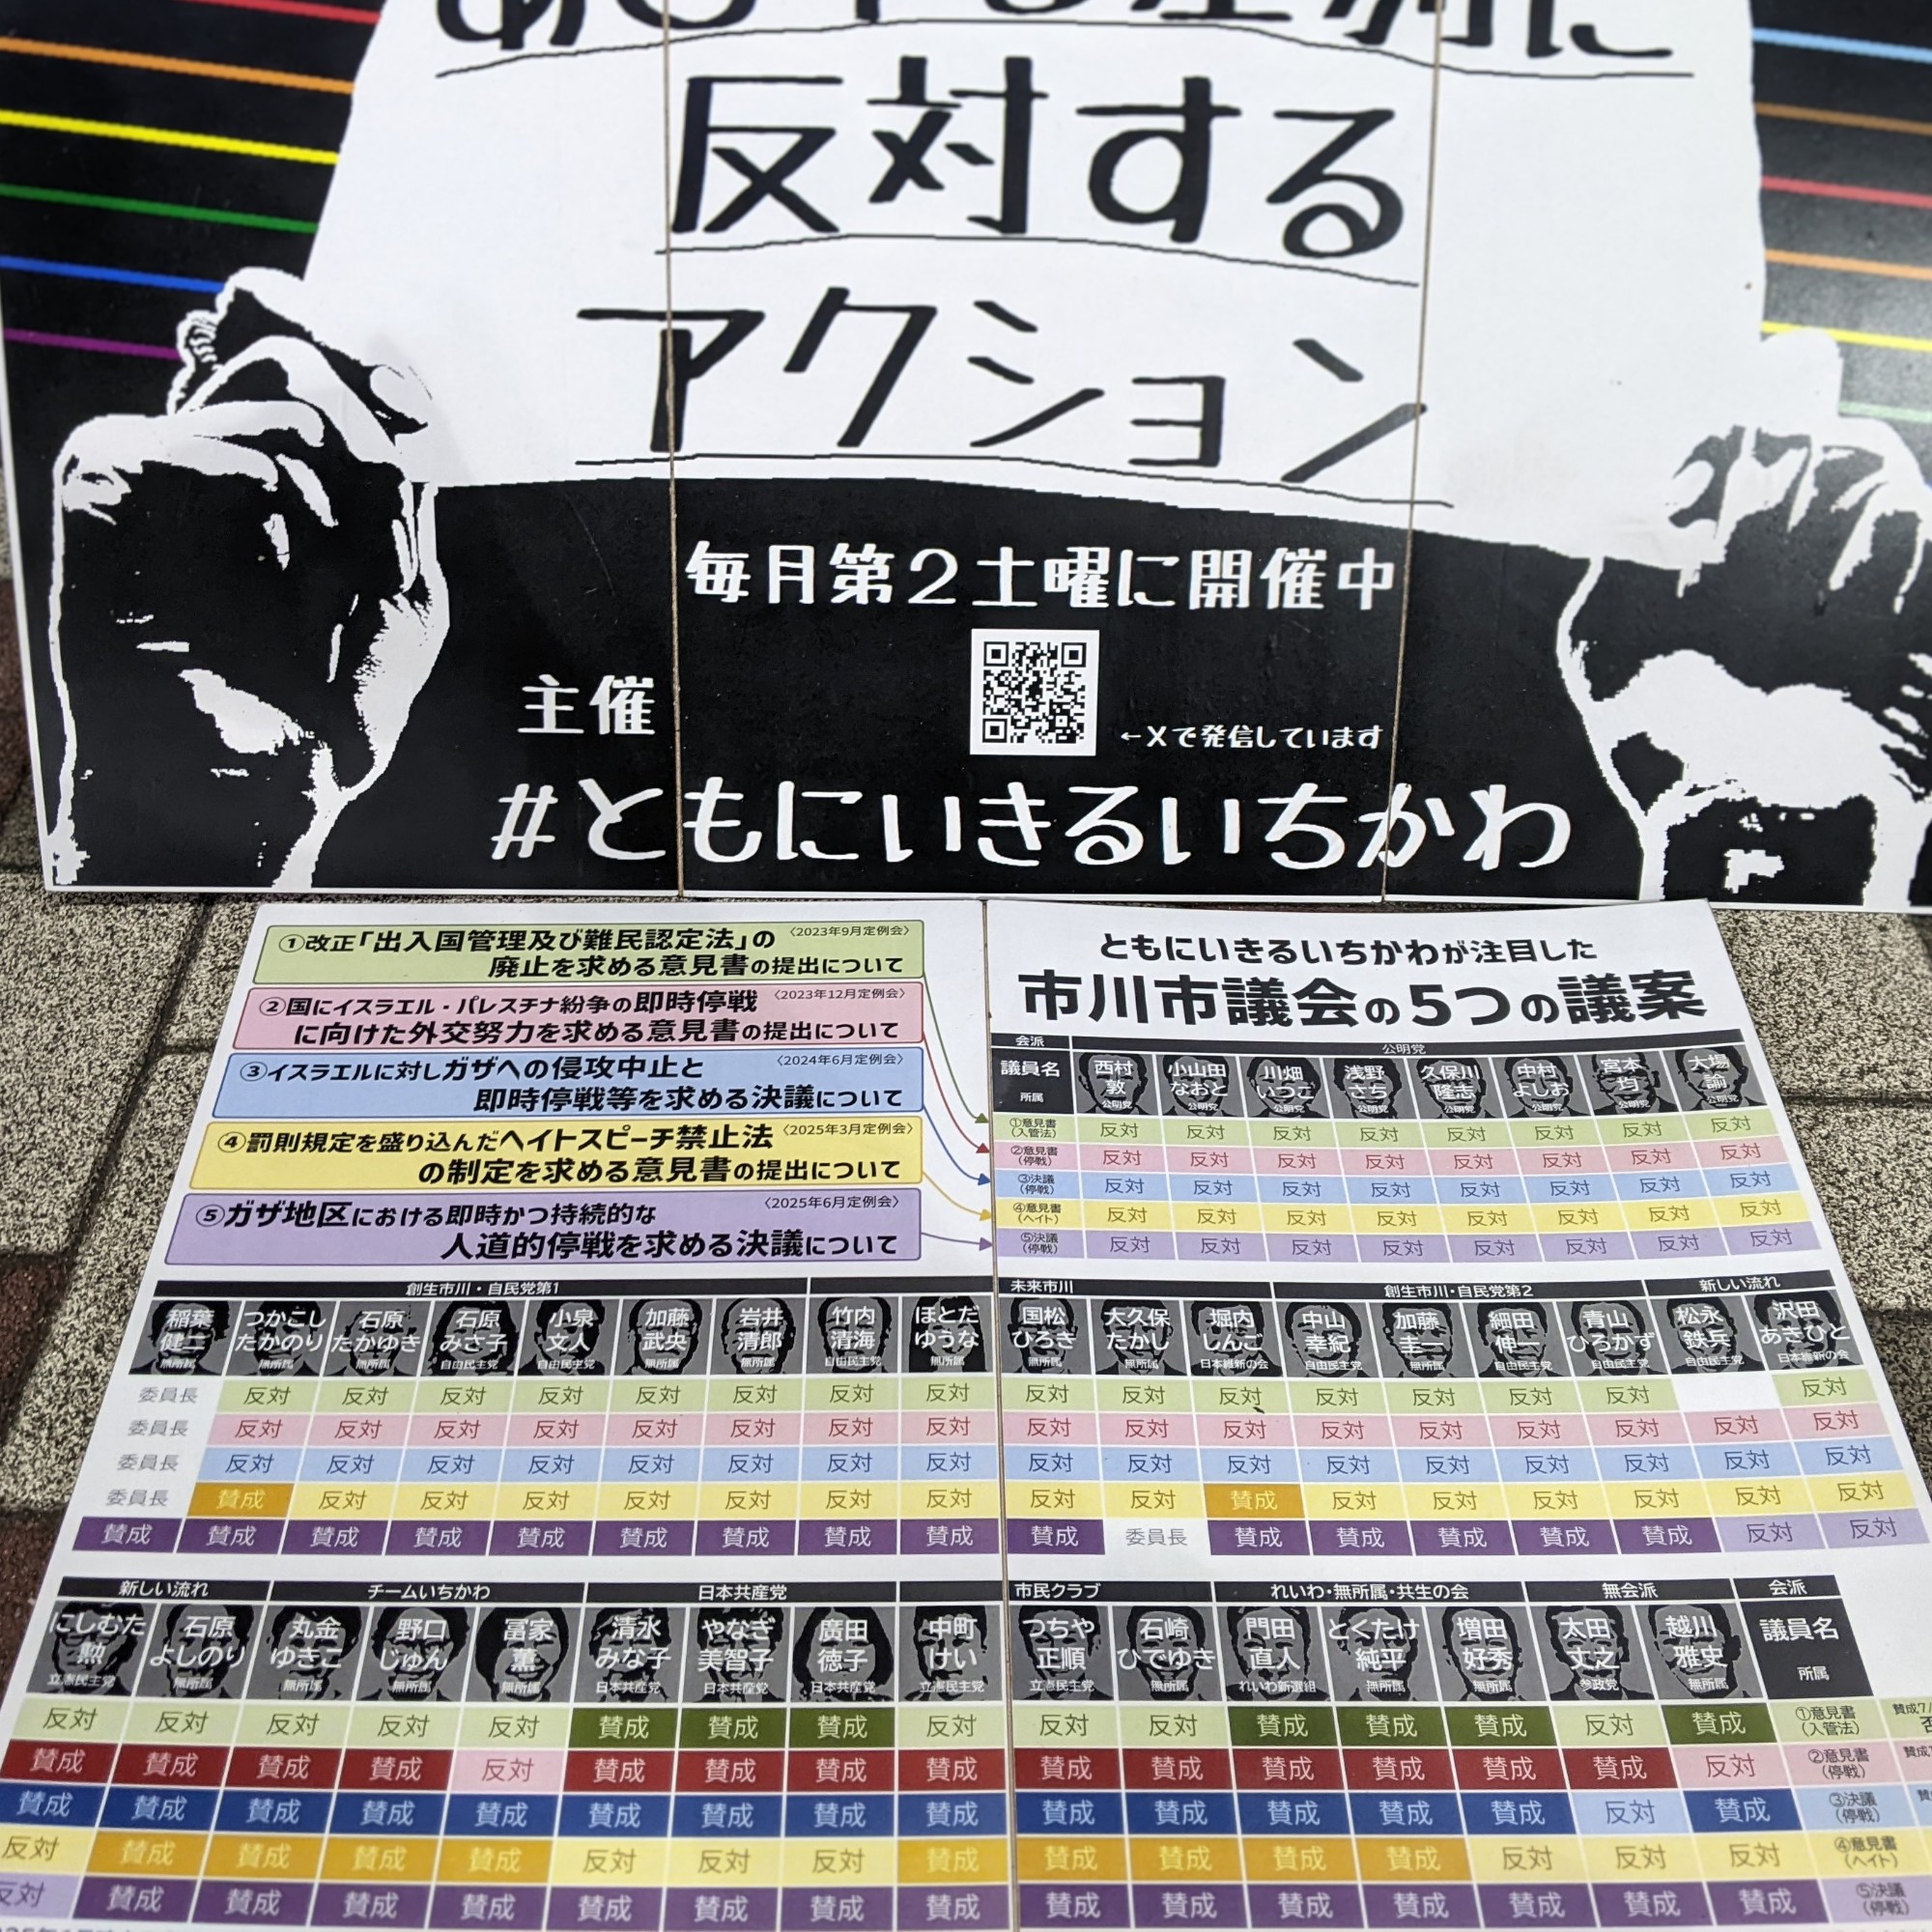 反対する
アクション
毎月第2土曜に開催中
主催
←Xで発信しています
#ともにいきるいちかわ
①改正「出入国管理及び難民認定法」の 〈2023年9月定例会〉
廃止を求める意見書の提出について
②国にイスラエル・パレスチナ紛争の即時停戦 〈2023年12月定例会〉
に向けた外交努力を求める意見書の提出について
③イスラエルに対しガザへの侵攻中止と 〈2024年6月定例会〉
即時停戦等を求める決議について
④罰則規定を盛り込んだヘイトスピーチ禁止法 〈2025年3月定例会〉
の制定を求める意見書の提出について
⑤ガザ地区における即時かつ持続的な 〈2025年6月定例会〉
人道的停戦を求める決議について
ともにいきるいちかわが注目した
市川市議会の5つの議案
会派 公明党
議員名 西村敦 小山田なおと 川畑いつこ 浅野さち 久保川隆志 中村よしお 宮本均 大場諭
所属 公明党 公明党 公明党 公明党 公明党 公明党 公明党 公明党
①意見書(入管法) 反対 反対 反対 反対 反対 反対 反対 反対
②意見書(停戦) 反対 反対 反対 反対 反対 反対 反対 反対
③決議(停戦) 反対 反対 反対 反対 反対 反対 反対 反対
④意見書(ヘイト) 反対 反対 反対 反対 反対 反対 反対 反対
⑤決議(停戦) 反対 反対 反対 反対 反対 反対 反対 反対
創生市川・自民党第1 未来市川 創生市川・自民党第2 新しい流れ
稲葉健二 つかこしたかのり 石原たかゆき 石原みさ子 小泉文人 加藤武央 岩井清郎 竹内清海 ほとだゆうな 国松ひろき 大久保たかし 堀内しんご 中山幸紀 加藤圭一 細田伸一 青山ひろかず 松永鉄兵 沢田あきひと
無所属 無所属 無所属 自由民主党 自由民主党 無所属 無所属 自由民主党 無所属 無所属 無所属 日本維新の会 自由民主党 無所属 自由民主党 自由民主党 自由民主党 日本維新の会
委員長 反対 反対 反対 反対 反対 反対 反対 反対 反対 反対 反対 反対 反対 反対 反対 反対
委員長 反対 反対 反対 反対 反対 反対 反対 反対 反対 反対 反対 反対 反対 反対 反対 反対 反対
委員長 反対 反対 反対 反対 反対 反対 反対 反対 反対 反対 反対 反対 反対 反対 反対 反対 反対
委員長 賛成 反対 反対 反対 反対 反対 反対 反対 反対 反対 賛成 反対 反対 反対 反対 反対 反対
賛成 賛成 賛成 賛成 賛成 賛成 賛成 賛成 賛成 賛成 委員長 賛成 賛成 賛成 賛成 賛成 反対 反対
新しい流れ チームいちかわ 日本共産党 市民クラブ れいわ・無所属・共生の会 無会派 会派
にしむた勲 石原よしのり 丸金ゆきこ 野口じゅん 冨家薫 清水みな子 やなぎ美智子 廣田徳子 中町けい つちや正順 石崎ひでゆき 門田直人 とくたけ純平 増田好秀 太田丈之 越川雅史 議員名
立憲民主党 無所属 無所属 無所属 無所属 日本共産党 日本共産党 日本共産党 立憲民主党 立憲民主党 無所属 れいわ新選組 無所属 無所属 参政党 無所属 所属
反対 反対 反対 反対 反対 賛成 賛成 賛成 反対 反対 反対 賛成 賛成 賛成 反対 賛成 ①意見書(入管法) 賛成7/
賛成 賛成 賛成 賛成 反対 賛成 賛成 賛成 賛成 賛成 賛成 賛成 賛成 賛成 賛成 反対 ②意見書(停戦) 賛成
賛成 賛成 賛成 賛成 賛成 賛成 賛成 賛成 賛成 賛成 賛成 賛成 賛成 賛成 反対 賛成 ③決議(停戦)
反対 賛成 賛成 賛成 賛成 反対 反対 反対 賛成 賛成 賛成 賛成 賛成 反対 反対 反対 ④意見書(ヘイト)
反対 賛成 賛成 賛成 賛成 賛成 賛成 賛成 賛成 賛成 賛成 賛成 賛成 賛成 賛成 賛成 ⑤決議(停戦)